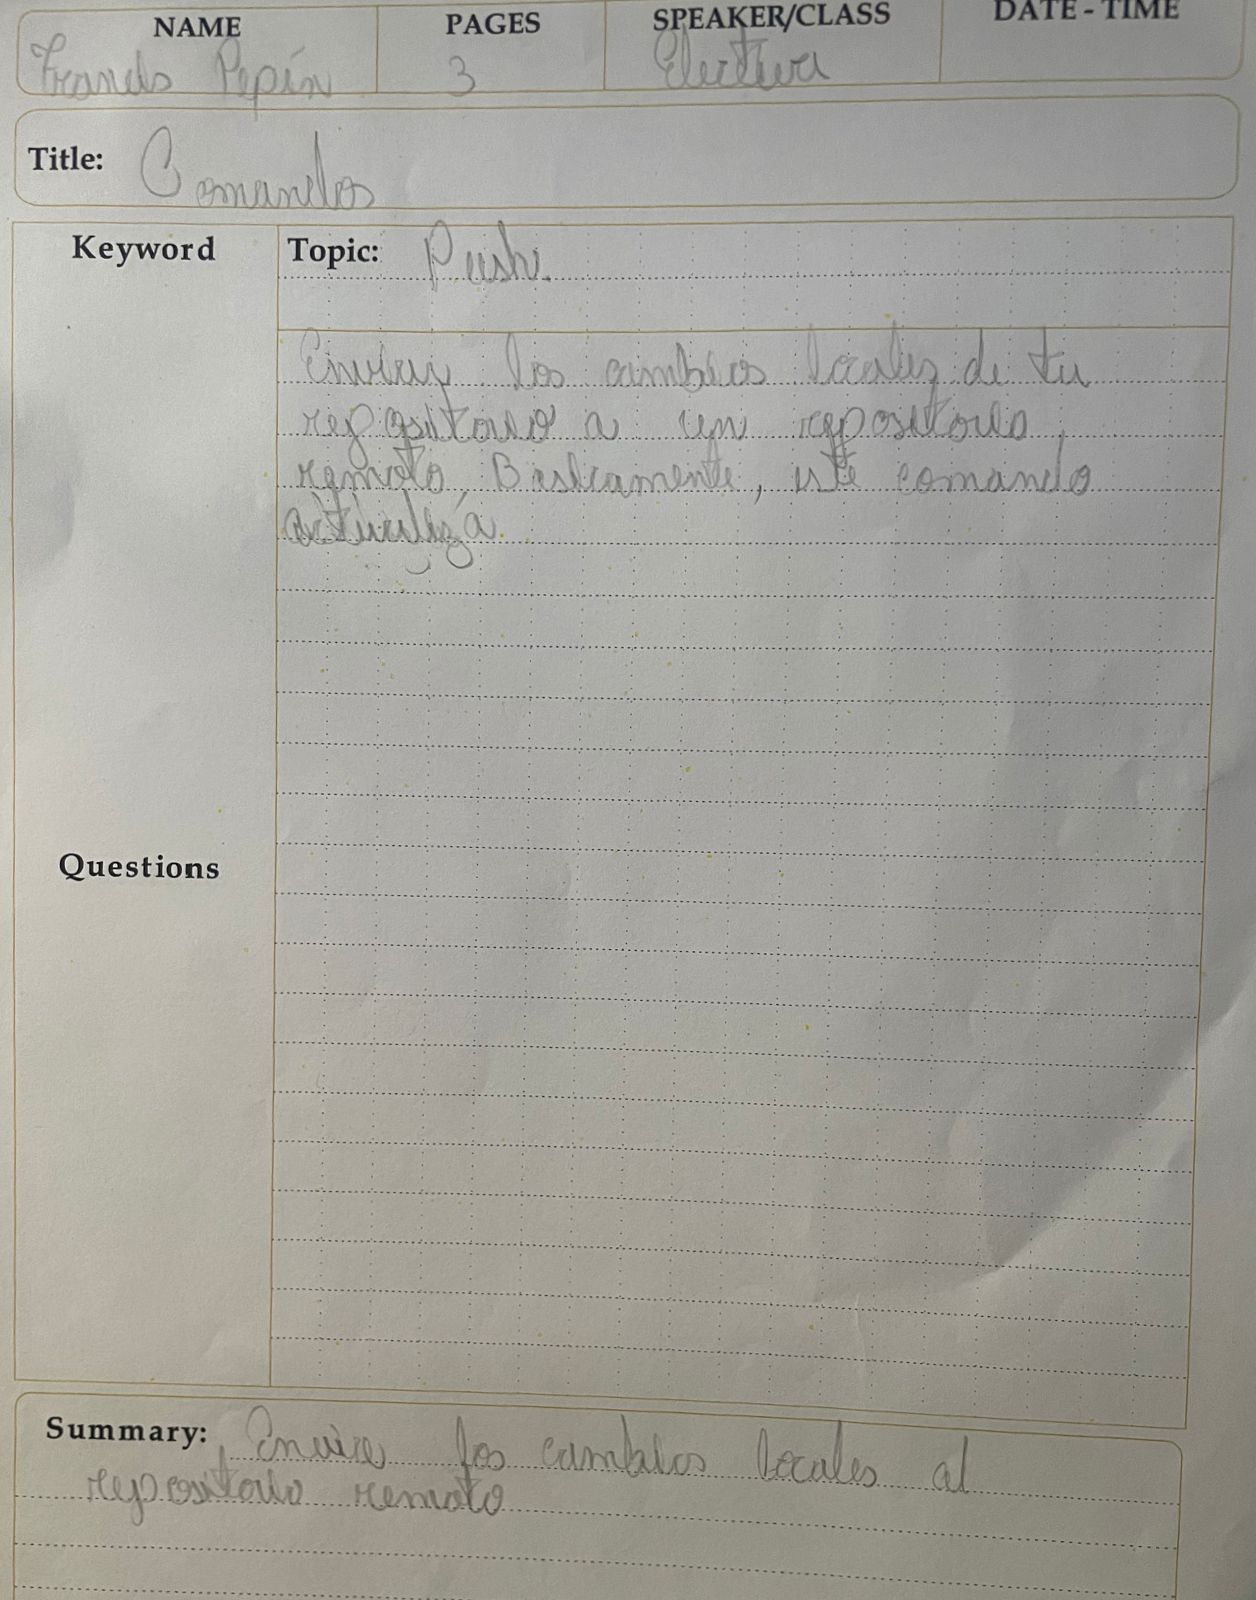 NAME PAGES SPEAKER/CLASS DATE - TIME
Francis Pepín 3 Electiva
Title: Comandos
Keyword Topic: Push.
Enviar los cambios locales de tu
repositorio a un repositorio
remoto, Basicamente, este comando
actualiza.
Questions
Summary: Envia los cambios locales al
repositorio remoto